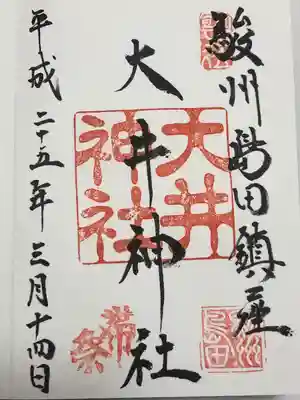 駿州島田鎮座
大井神社
大井
神社
帯祭
平成二十五年三月十四日